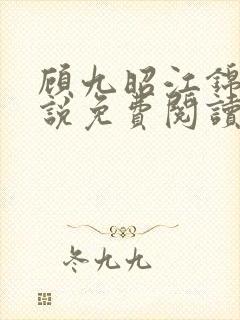 顾九昭江锦
說免費閱讀
冬九九